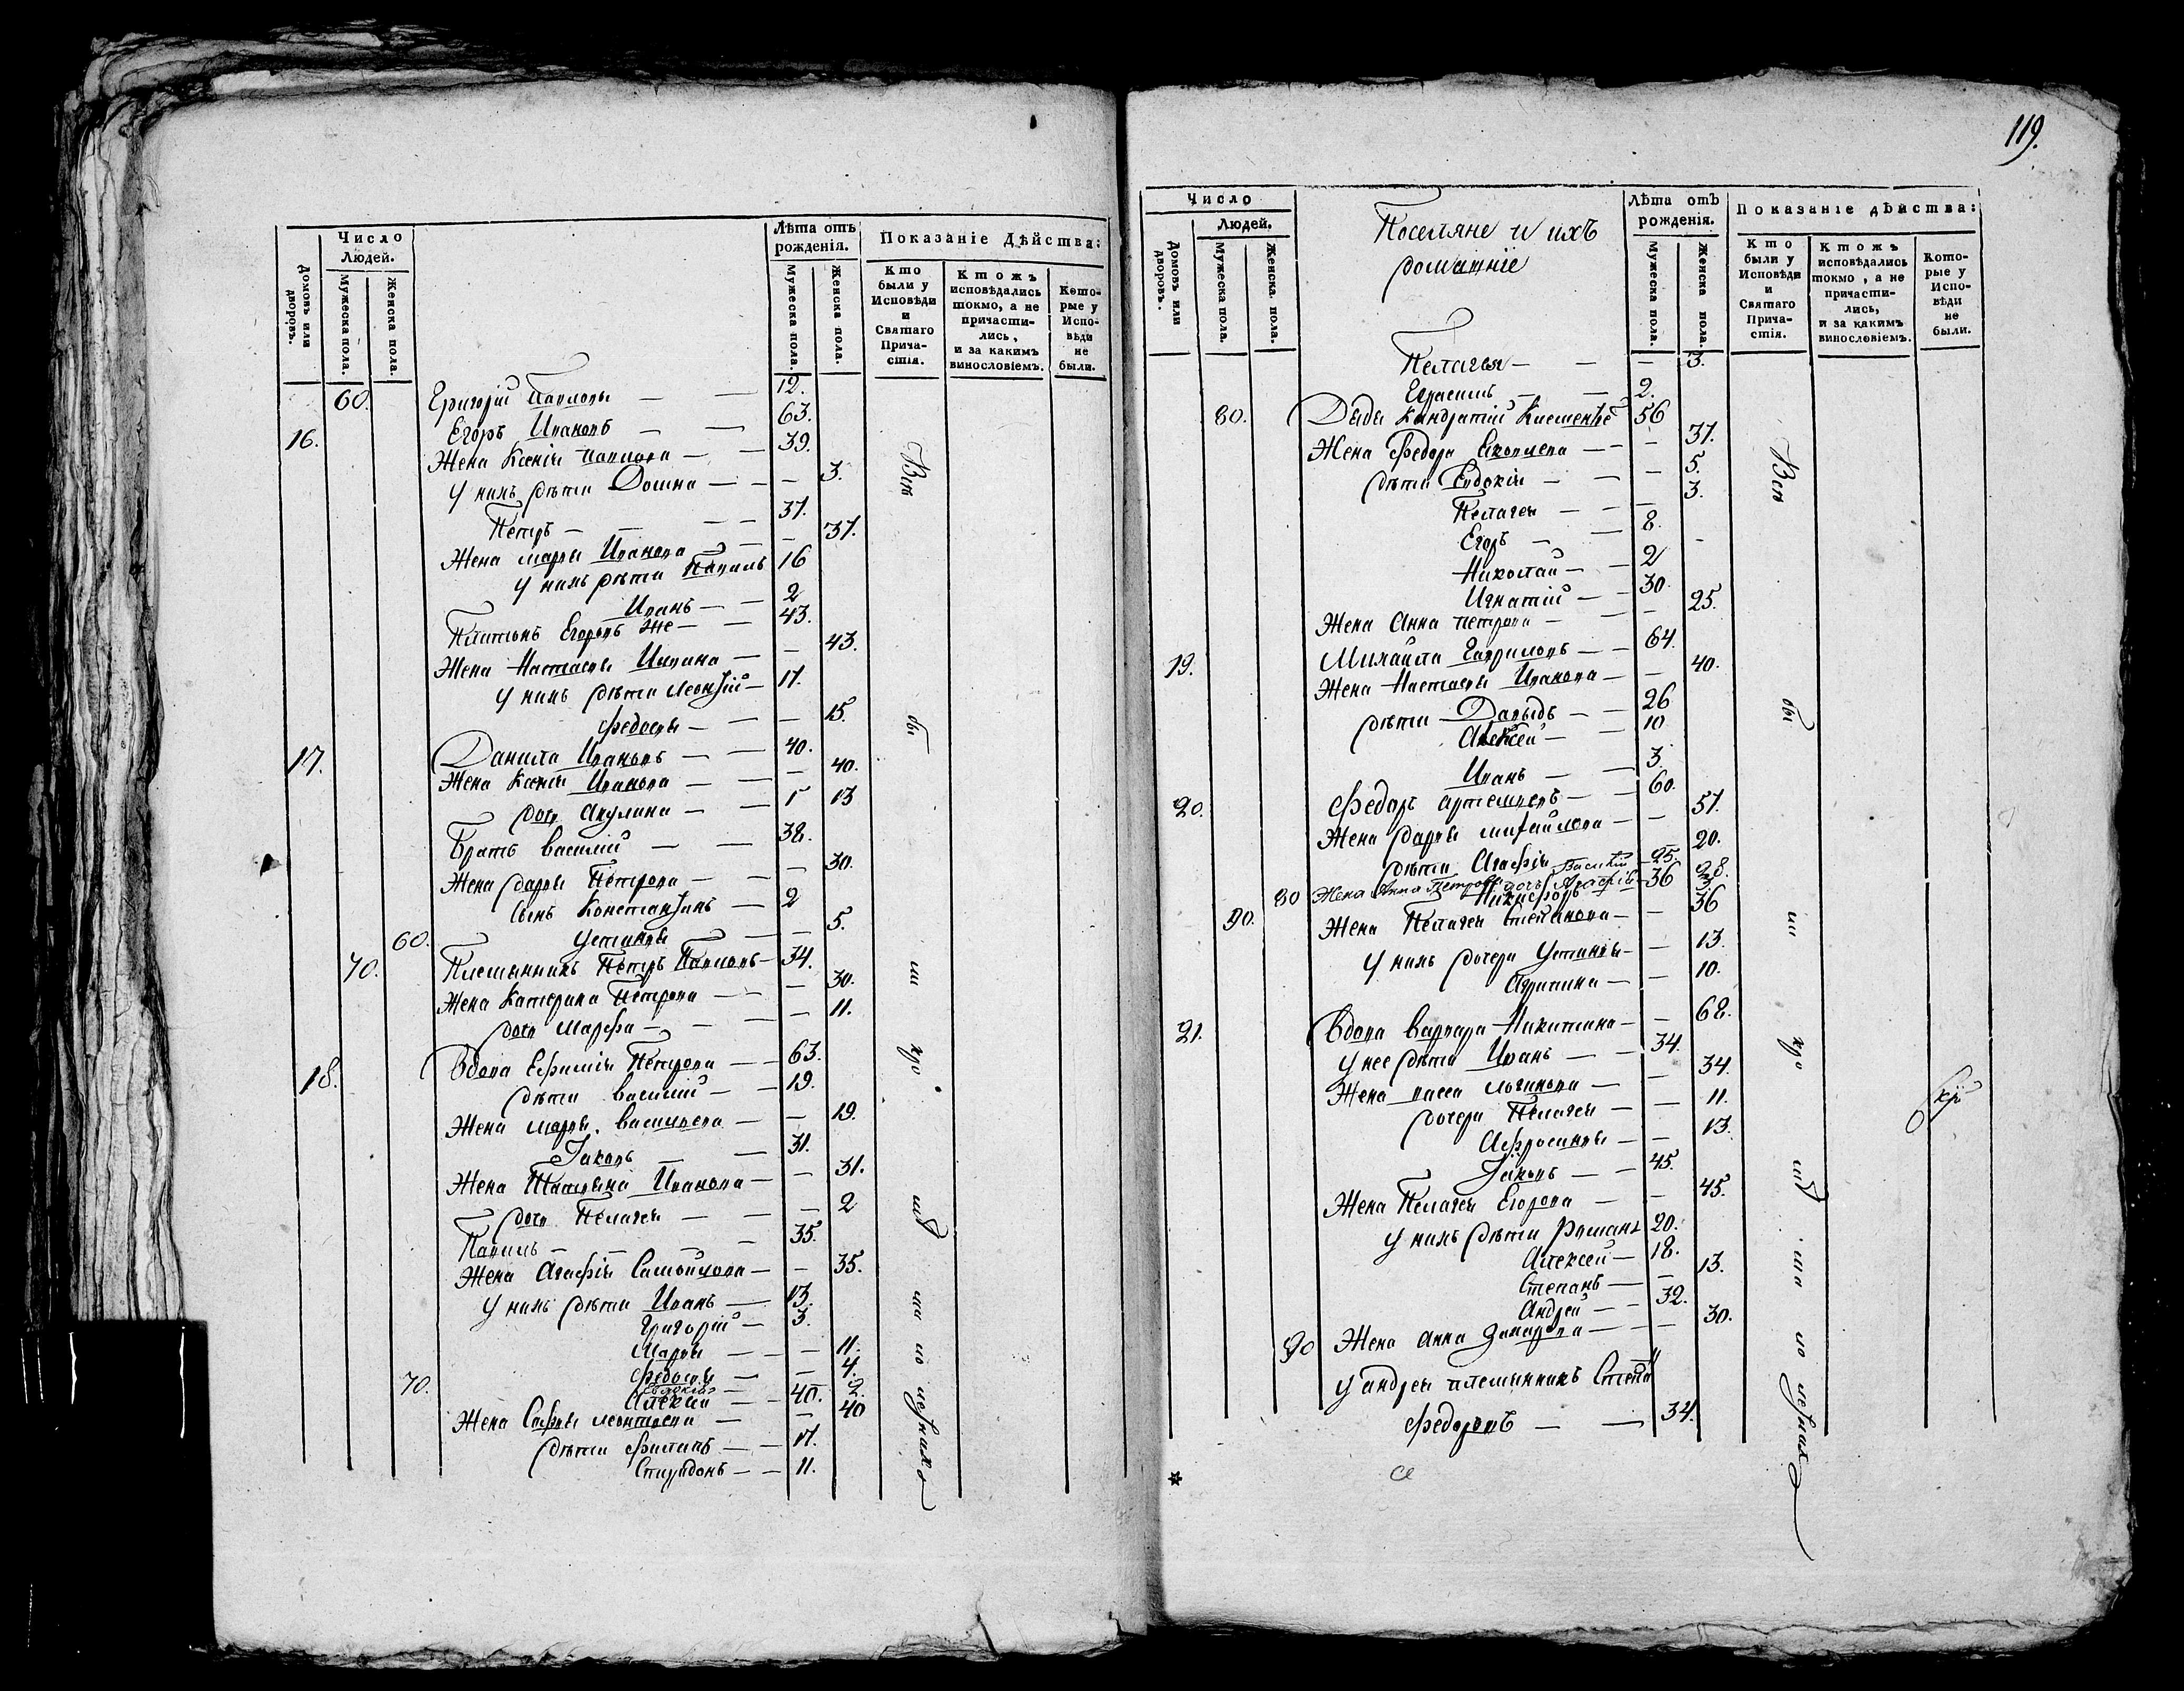 Число
Людей.
Домовъ или дворовъ.
Мужеска пола.
Женска пола.
Лѣта отъ рожденія.
Мужеска пола.
Женска пола.
Показаніе дѣйства:
Кто были у Исповѣди и Святаго Прича-стія.
Ктожъ исповѣдались токмо, а не причасти-лись, и за какимъ винословіемъ.
Кото-рые у Испо-вѣди не были.
60. Григорій Павловъ — — 12.
16. Егоръ Ивановъ — — 63.
Жена Ксенія Павлова — — 39.
У нихъ дѣти Домна — — — 3.
Петръ — — — 37.
Жена Марья Иванова — — — 37.
У нихъ дѣти Павилъ 16
Иванъ — — 2
Платонъ Егоровъ же — — 43.
Жена Настасья — — 43.
У нихъ дѣти Леонтій — 17.
Федосья — — — 15.
17. Данила Ивановъ — — 40.
Жена Ксенія Иванова — — — 40.
дочь Акулина — — 1 13
Братъ Василій — — 38.
Жена Дарья Петрова — — — 30.
Сынъ Константинъ — 2
60. Устинья — — 5.
70. Племянникъ Петръ Павловъ — 34.
Жена Катерина Петрова — — — 30.
дочь Марфа — — — 11.
18. Вдова Ефимія Петрова — — 63.
дѣти Василій — — 19.
Жена Марья Васильева — — 19.
Іаковъ — — 31.
Жена Татьяна Иванова — — 31.
дочь Пелагея — — — 2
Павилъ — — — 35.
Жена Агафія Самойлова — — 35.
У нихъ дѣти Иванъ — 13.
Григорій — 3.
Марья — — — 11.
Федосья — — 4.
70. Евдокія — 2.
Алексій — — 40.
Жена Софья Леонтьева — — 40
дѣти Филипъ — — 17.
Спиридонъ — — 11.
Всѣ
бы
ли
119.
Число
Людей.
Домовъ или дворовъ.
Мужеска пола.
Женска пола.
Поселяне и ихъ
домашніе
Лѣта отъ рожденія.
Мужеска пола.
Женска пола.
Показаніе дѣйства:
Кто были у Исповѣди и Святаго Прича-стія.
Ктожъ исповѣдались токмо, а не причасти-лись, и за какимъ винословіемъ.
Кото-рые у Испо-вѣди не были.
Пелагея — — — 3.
Герасимъ — — 2.
80. Дядя Кандратій 56
Жена Федора Яковлева — — — 37.
дѣти Евдокія — — — 5.
Пелагея — — — 3.
Егоръ — — 8.
Николай — — 2
Игнатій — — 30.
Жена Анна Петрова — — — 25.
19. Михайла Гавриловъ — — 64.
Жена Настасья Иванова — — 40.
дѣти Давыдъ — — 26
Алексей — — 10
Иванъ — — 3.
20. Федоръ Артемьевъ — — 60.
Жена Дарья Михайлова — — 57.
дѣти Агафія 20.
Василій — 25.
80 Жена Анна Петрова 28.
дочь Агафія 3.
90. Никифоръ 36
Жена Пелагея Степанова — — 36
У нихъ дочери Устинья — — 13.
Агрипина — — 10.
21. Вдова Варвара Никитина — — 68.
у нее дѣти Иванъ — — 34.
Жена Васса Логинова — — 34.
дочери Пелагея — — 11.
Афросинья — — 13.
Іаковъ — — 45.
Жена Пелагея Егорова — — 45.
У нихъ дѣти Романъ 20.
Алексей — 18.
Степанъ — — 13.
Андрей — — 32.
90 Жена Анна Захарова — — — 30.
У Андрея племянникъ
Федоровъ — — 34.
Всѣ
бы
ли